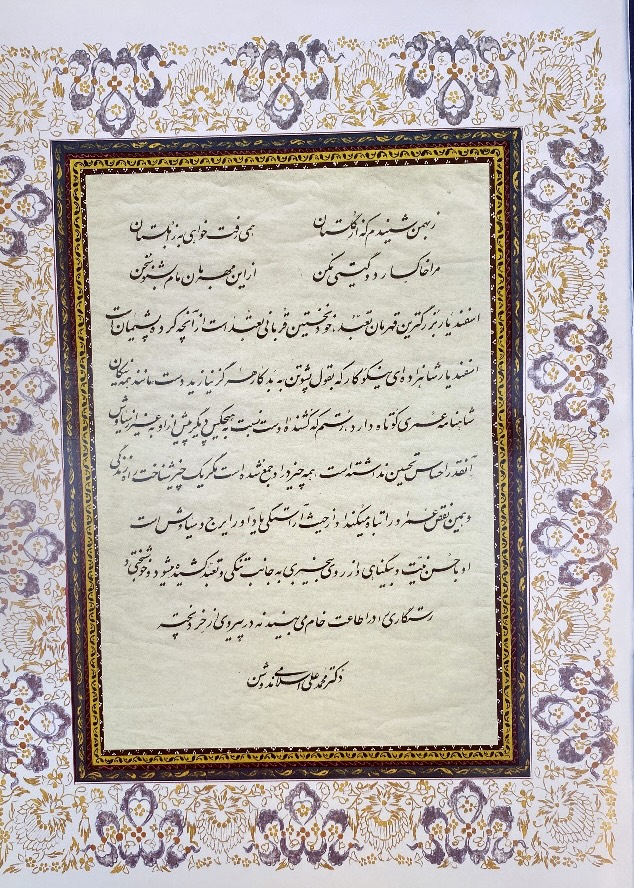 ز بهمن شنیدم که از گلستان همی رفت خواهی به زابلستان
مرا خاکسار دو گیتی مکن ازین مهربان مام بشنو سخن
اسفندیار بزرگترین قهرمان تعبد، خود نخستین قربانی تعبد است از آنچه کرده پشیمان است
اسفندیار شاهزاده‌ای نیکوکار که بقول پشوتن به بد کار هرگز نیازید دست مانند همه نیکان
شاهنامه عمری کوتاه دارد رستم که کشنده اوست نسبت بهیچکس دیگر پیش از او بغیر از سیاوش
آنقدر احساس تحسین نداشته است همه چیز در او جمع شده است مگر یک چیز شناخت راه زندگی
و همین نقص عمر او را تباه میکند او از حیث آراستگی یادآور ایرج و سیاوش است
او با حسن نیت و بیگناهی و از روی بیخبری به جانب تنگی و تعبد کشیده میشود و خوشبختی و
رستگاری را در اطاعت خام می‌بیند نه در پیروی از خرد پخته
دکتر محمد علی اسلامی ندوشن